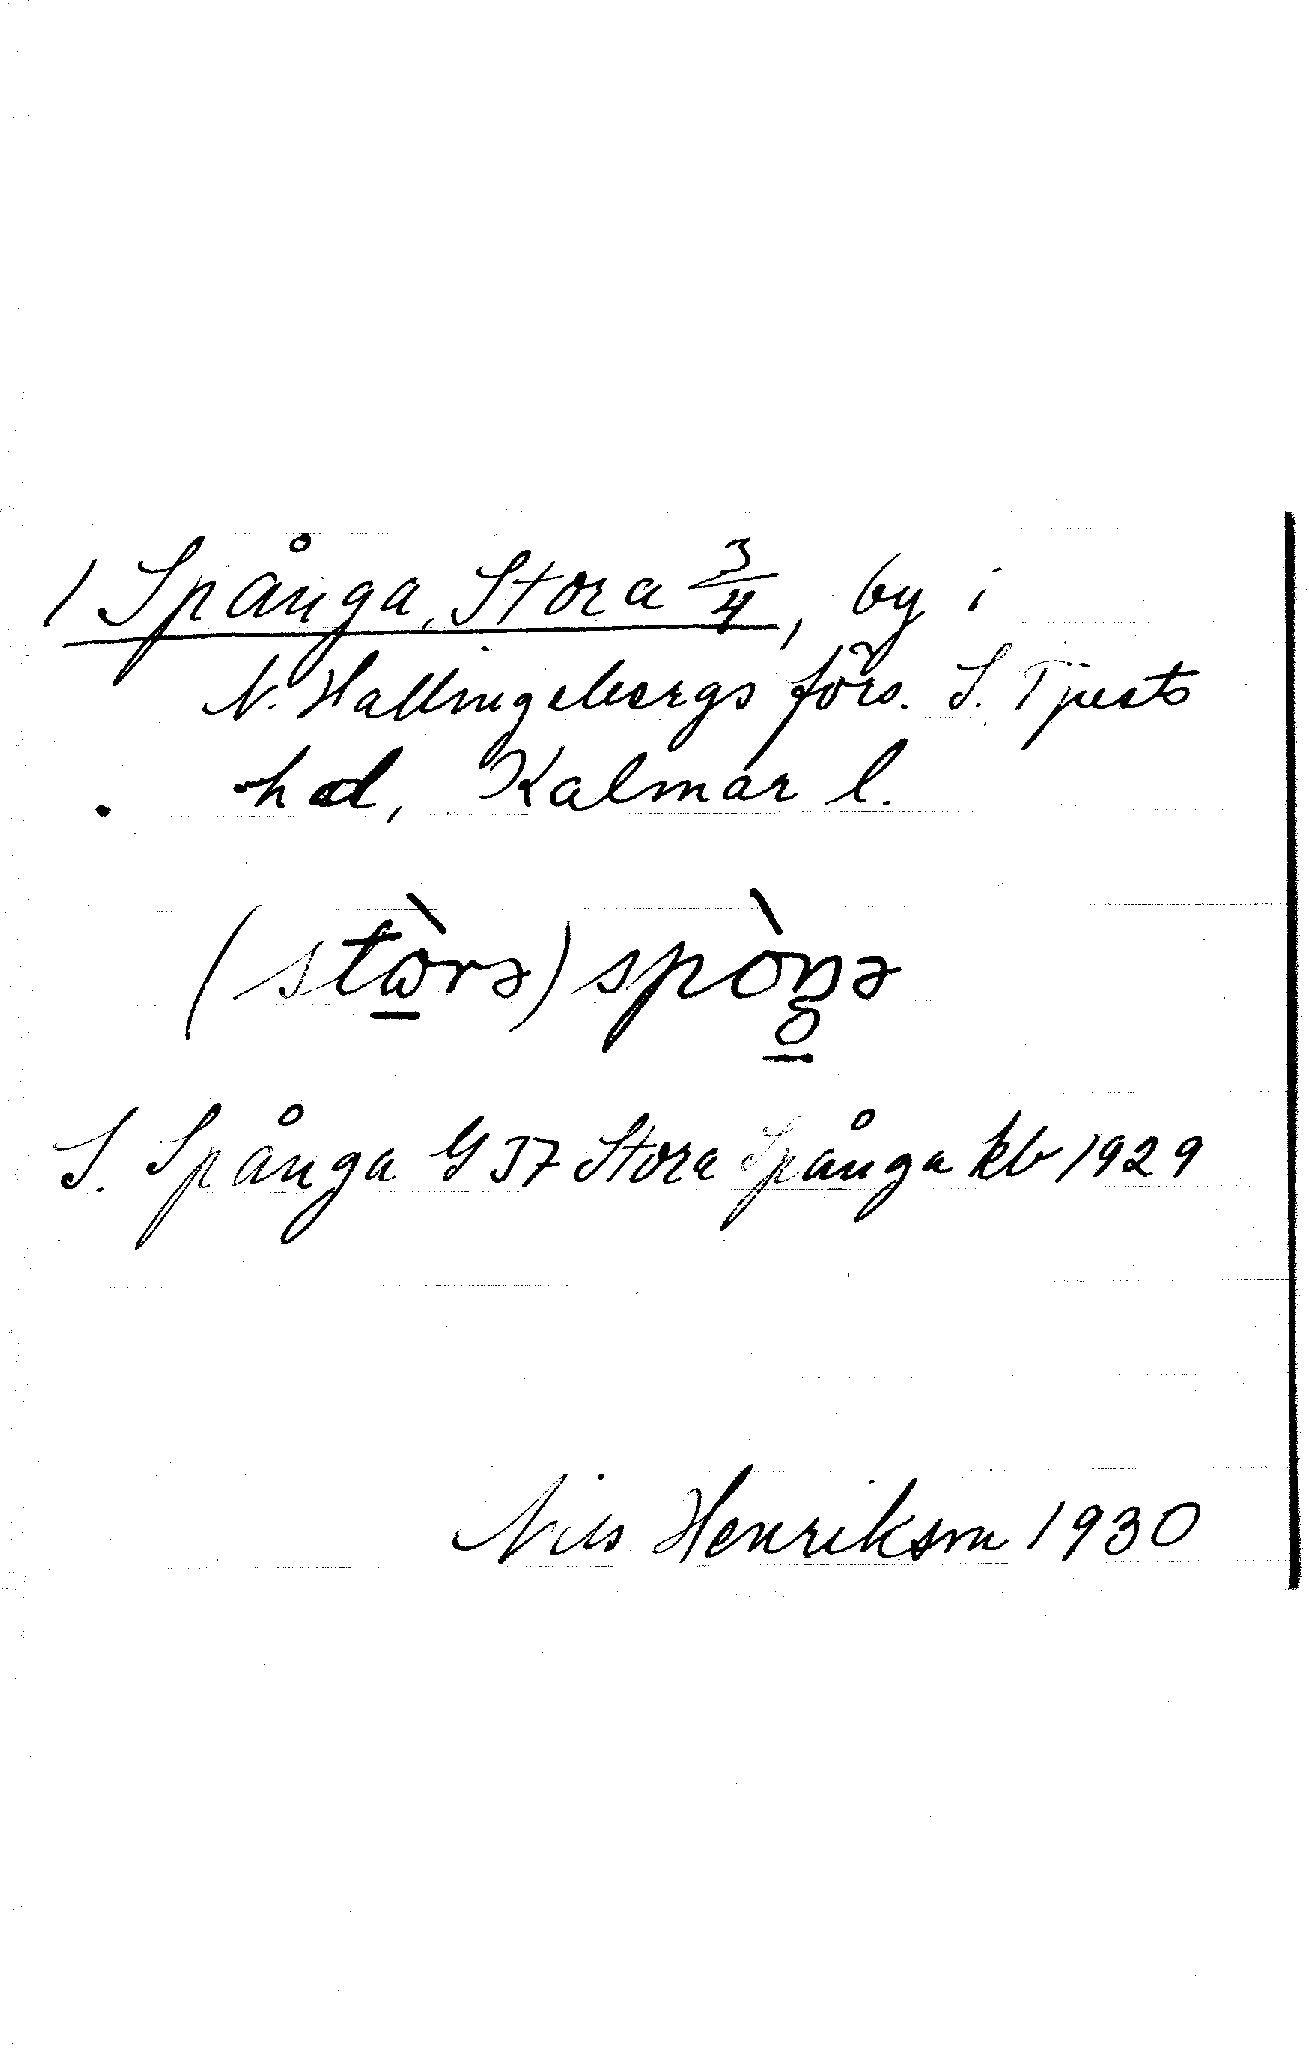 1 Spånga, Stora 3/4, by i
N. Hallingebergs förs. S. Tjusts
hd, Kalmar l.
(stɷ̀rə) spòŋə
S. Spånga G 37 Stora Spånga kb 1929
Nils Henrikson 1930